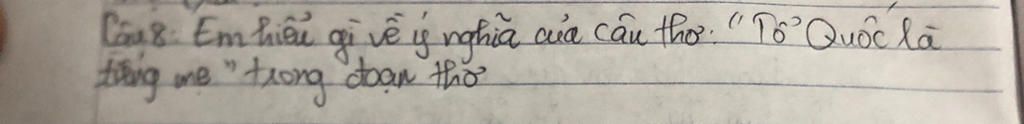 Câu 8: Em hiểu gì về ý nghĩa của câu thơ: "Tổ Quốc là
tiếng mẹ" trong đoạn thơ